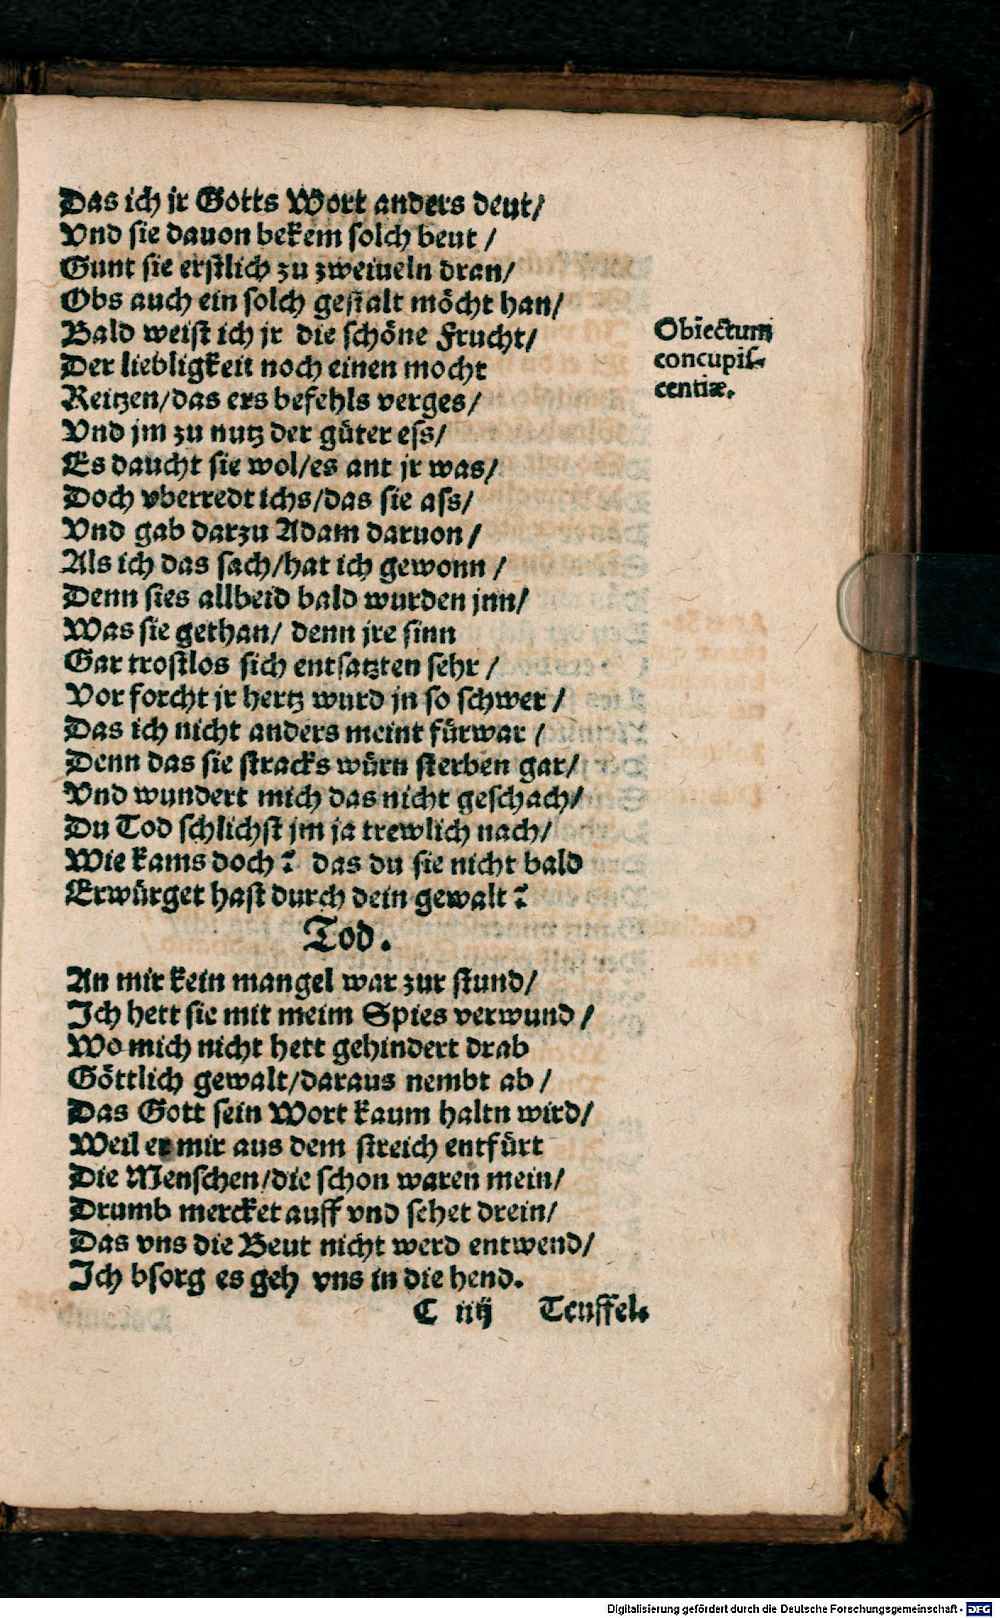 Das ich jr Gotts Wort anders deut/
Vnd sie dauon bekem solch beut /
Gunt sie erstlich zu zweiueln dran/
Obs auch ein solch gestalt möcht han/
Bald weist ich jr die schöne Frucht/
Obiectum
concupis-
centiæ.
Der liebligkeit noch einen mocht
Reitzen/das ers befehls verges/
Vnd jm zu nutz der güter ess/
Es daucht sie wol/es ant jr was/
Doch vberredt ichs/das sie ass/
Vnd gab darzu Adam daruon /
Als ich das sach/hat ich gewonn /
Denn sies allbeid bald wurden jnn/
Was sie gethan/ denn jre sinn
Gar trostlos sich entsatzten sehr /
Vor forcht jr hertz wurd jn so schwer /
Das ich nicht anders meint fürwar /
Denn das sie stracks würn sterben gar/
Vnd wundert mich das nicht geschach/
Du Tod schlichst jm ja trewlich nach/
Wie kams doch? das du sie nicht bald
Erwürget hast durch dein gewalt?
Tod.
An mir kein mangel war zur stund/
Ich hett sie mit meim Spies verwund /
Wo mich nicht hett gehindert drab
Göttlich gewalt/daraus nembt ab /
Das Gott sein Wort kaum haltn wird/
Weil er mir aus dem streich entfürt
Die Menschen/die schon waren mein/
Drumb mercket auff vnd sehet drein/
Das vns die Beut nicht werd entwend/
Ich bsorg es geh vns in die hend.
C iiij Teuffel.
Digitalisierung gefördert durch die Deutsche Forschungsgemeinschaft - DFG